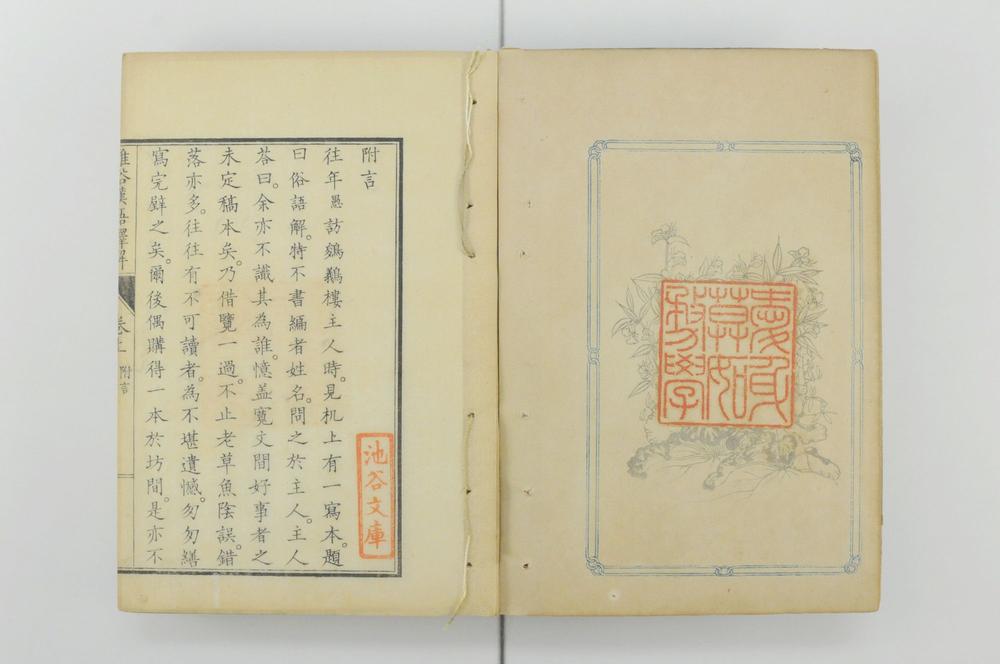 附言
往年愚訪樓主人時。見机上有一寫本。題
曰俗語解。特不書編者姓名。問之於主人。主人
荅曰。余亦不識其為誰。憶盖寬文間好事者之
未定稿本矣。乃借覽一過。不止老草魚陰誤錯
落亦多。往往有不可讀者。為不堪遺憾。匆匆繕
寫完璧之矣。爾後偶購得一本於坊間。是亦不
雅俗漢語譯解 卷上 附言
池谷文庫